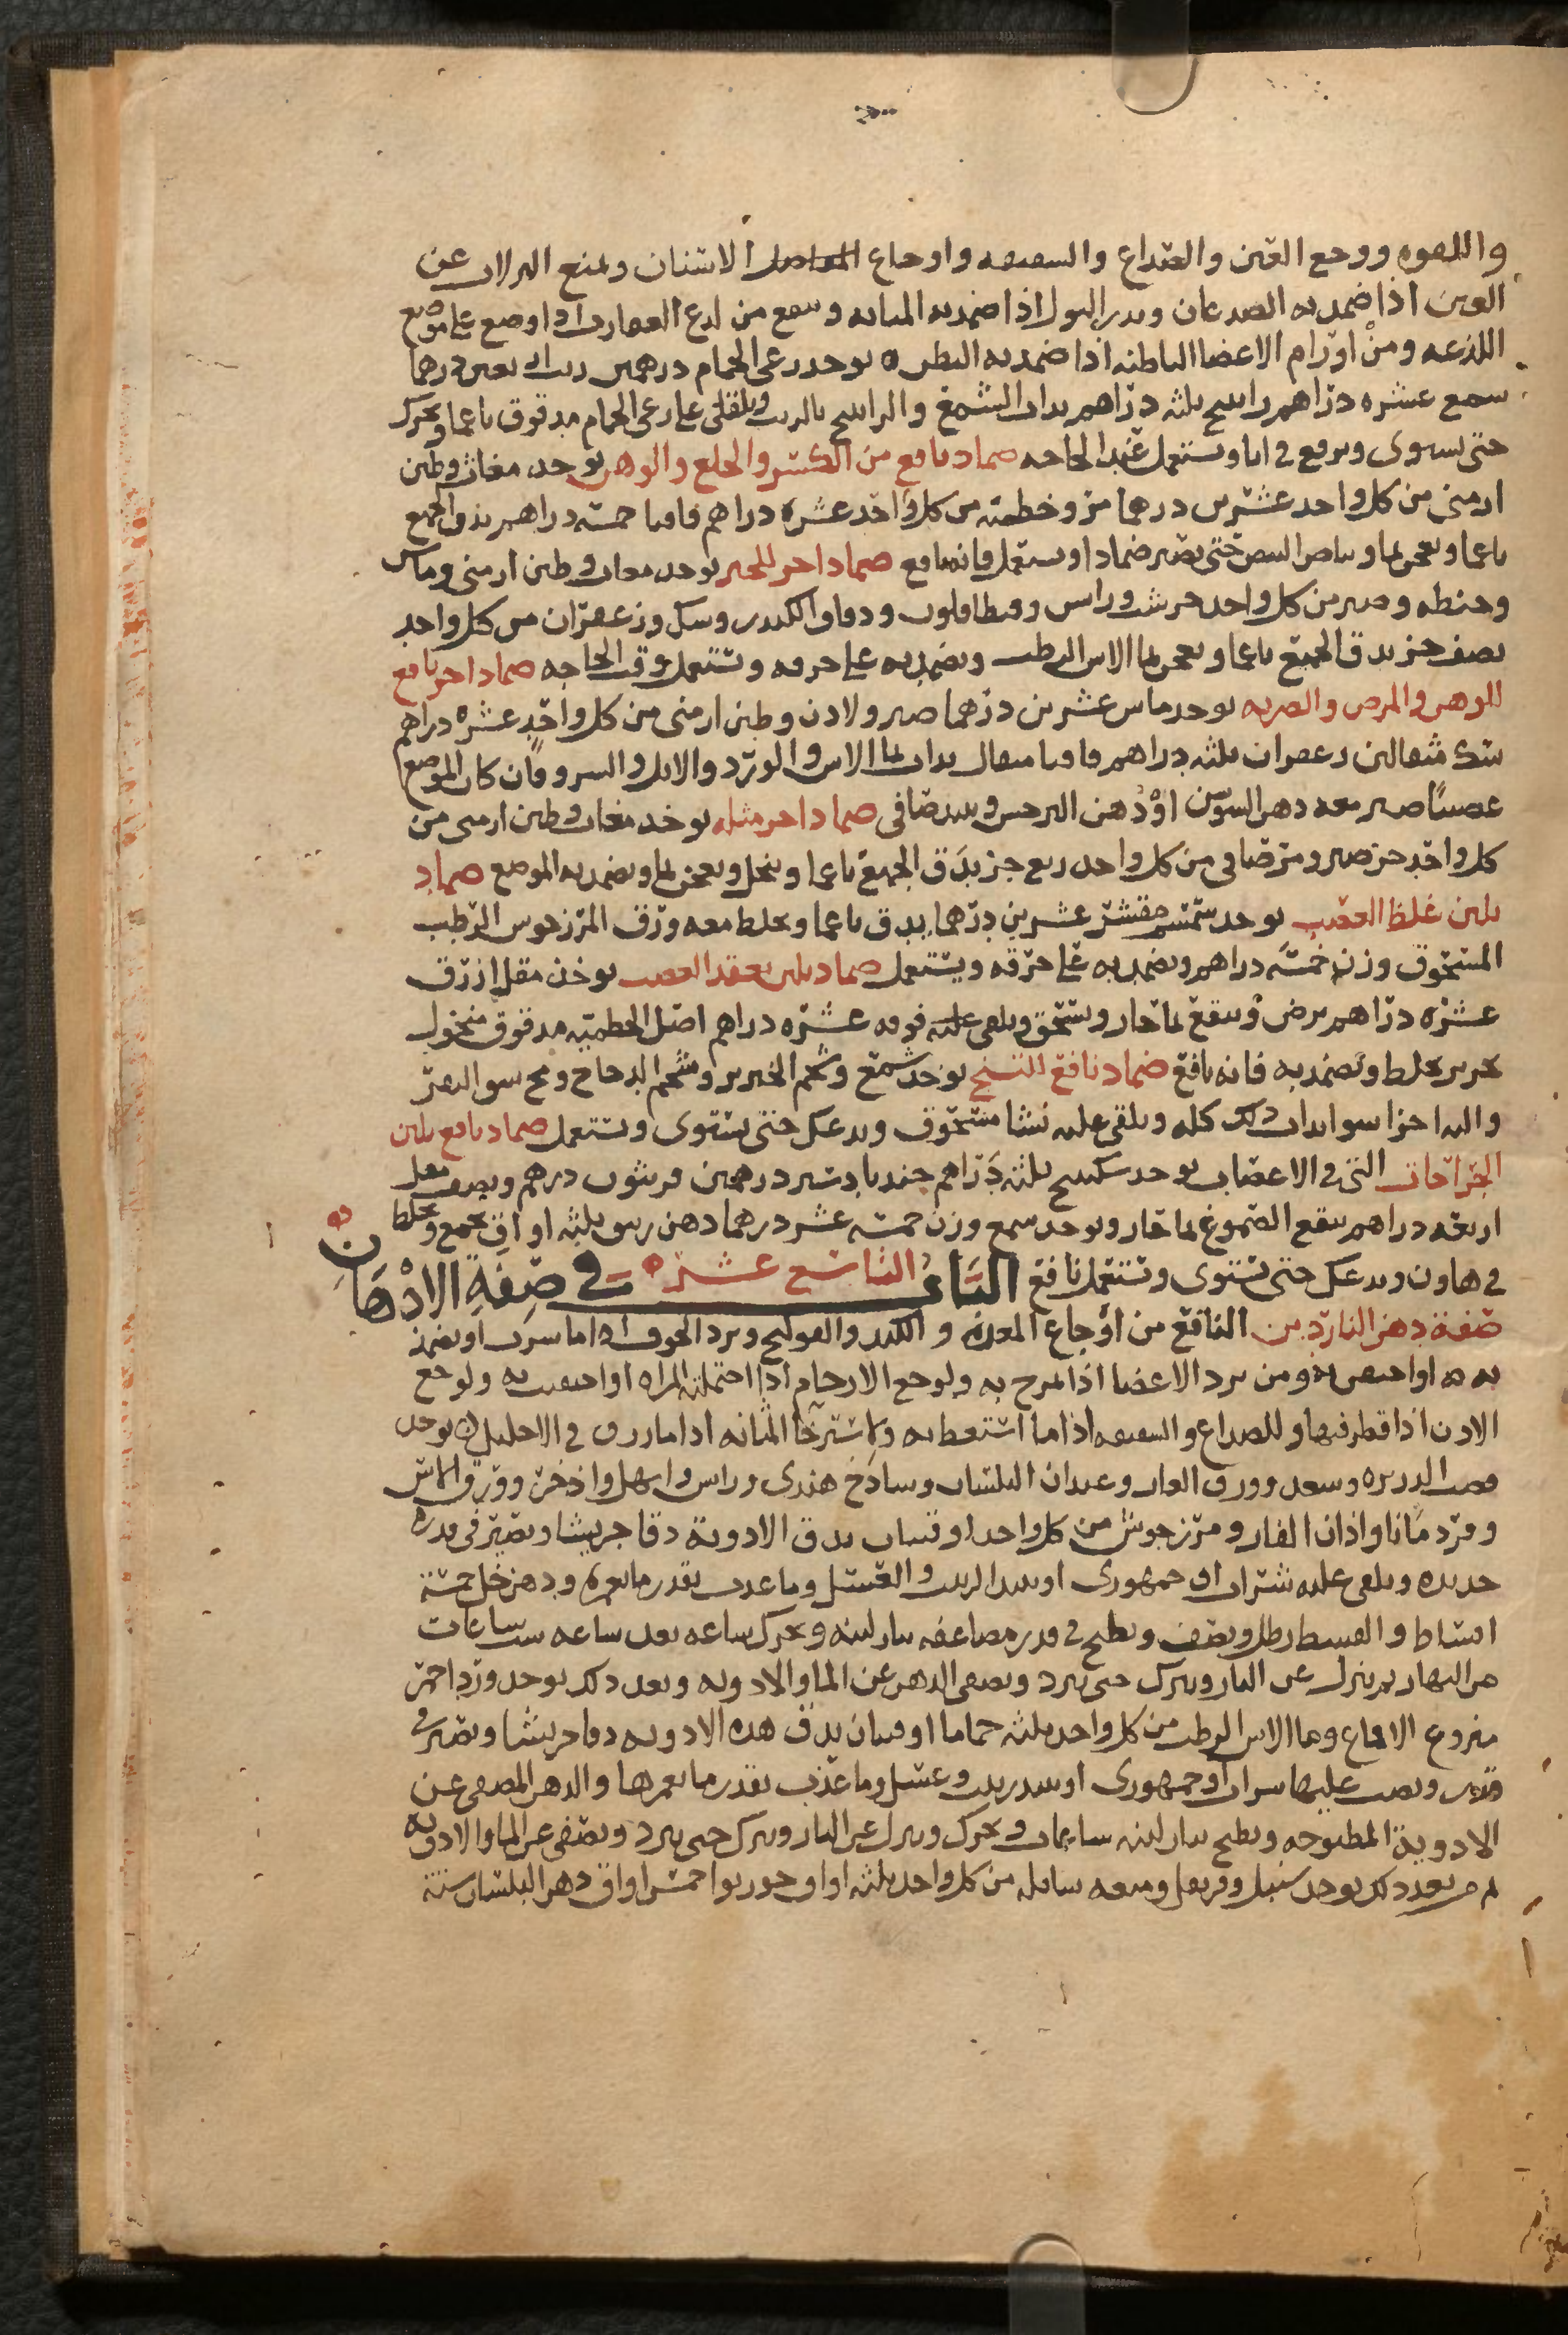 واللقوه ووجع العين والصداع والشقيقه واوجاع الاسنان ويمنع النزلات عن
العين اذا ضمد به الصدغان ويدر البول اذا ضمد به المثانه وينفع من لدغ العقارب اذا وضع على موضع
اللذعه ومن اورام الاعضا الباطنه اذا ضمد به البطن يوخذ رعى الحمام درهمين زيت اربعين درهما
شمع عشره دراهم راتينج ثلثه دراهم يداب الشمع والراتينج بالزيت ويلقى على رعى الحمام مدقوق ناعما ويحرك
حتى يستوى ويرفع فى انا ويستعمل عند الحاجه ضماد نافع من الكسر والخلع والوهن يوخذ مغاث وطين
ارمنى من كل واحد عشرين درهما مر وخطميه من كل واحد عشره دراهم قاقيا خمسه دراهم يدق الجميع
ناعما ويعجن بما وبياض البيض حتى يصير ضمادا ويستعمل فانه نافع ضماد اخر للجبر يوخذ مغاث وطين ارمنى وماش
وحنطه وصبر من كل واحد جز وراس ودقاق الكندر وسك وزعفران من كل واحد
نصف جز يدق الجميع ناعما ويعجن بما الاس الرطب ويضمد به على خرقه ويستعمل وقت الحاجه ضماد اخر نافع
للوهن والرض والضربه يوخذ ماش عشرين درهما صبر ولادن وطين ارمنى من كل واحد عشره دراهم
سك مثقالين زعفران ثلثه دراهم قاقيا مثقال يداب بما الاس والورد والاثل والسرو فان كان الموضع
عصبيا صير معه دهن السوسن او دهن النرجس ونبيد صافى ضماد اخر مثله يوخذ مغاث وطين ارمنى من
كل واحد جز صبر ومر صافى من كل واحد ربع جز يدق الجميع ناعما وينخل ويعجن بما ويضمد به الموضع ضماد
يلين غلظ العصب يوخذ سمسم مقشر عشرين درهما يدق ناعما ويخلط معه ورق المرزجوش الرطب
المسحوق وزن خمسه دراهم ويضمد به على خرقه ويستعمل ضماد يلين تعقد العصب يوخذ مقل ازرق
عشره دراهم يرض وينقع بما حار ويسحق ويلقى عليه فوقه عشره دراهم اصل الخطميه مدقوق منخول
بحرير يخلط ويضمد به فانه نافع ضماد نافع للتشنج يوخذ شمع وشحم الخنزير وشحم الدجاج ومخ سوق البقر
والبه اجزا سوا يداب ذلك كله ويلقى عليه نشا مسحوق ويدعك حتى يستوى ويستعمل ضماد نافع يلين
الجراحات التى فى الاعصاب يوخذ سكبينج ثلثه دراهم جندبادستر درهمين فربيون درهم ونصف مقل
اربعه دراهم ينقع الصموغ بما حار ويوخذ شمع وزن خمسه عشر درهما دهن زيبق ثلثه اواق يجمع ويخلط
فى هاون ويدعك حتى يستوى ويستعمل نافع الباب التاسع عشره فى صفة الادهان
صفة دهن الناردين النافع من اوجاع المعده والكبد والقولنج وبرد الجوف اذا ما شرب او تضمد
به او احتقن به ومن برد الاعضا اذا تمرخ به ولوجع الارحام اذا احتملته المراه او احتقنت به ولوجع
الاذن اذا قطر فيها وللصداع والشقيقه اذا ما استعط به ولاسترخا المثانه اذا ما زرق فى الاحليل يوخذ
قصب الذريره وسعد وورق الغار وعيدان البلسان وساذج هندى وراس وابهل واذخر وورق الاس
وقردمانا واذان الفار ومرزجوش من كل واحد اوقيتان يدق الادوية دقا جريشا ويصير فى قدر
جديده ويلقى عليه شراب او جمهورى او نبيد الزبيب والعسل وما عذب بقدر ما يغمره ودهن خل خمسة
اقساط والقسط رطل ونصف ويطبخ فى قدر مضاعفه بنار لينه ويحرك ساعه بعد ساعه ست ساعات
من النهار ثم ينزل عن النار ويترك حتى يبرد ويصفى الدهن عن الما والادويه وبعد ذلك يوخذ ورد احمر
منزوع الاقماع وما الاس الرطب من كل واحد ثلثه حماما اوقيتان يدق هذه الادويه دقا جريشا ويصير فى
قدر ويصب عليها شراب او جمهورى او نبيد زبيب وعسل وما عذب بقدر ما يغمرها والدهن المصفى عن
الادوية المطبوخه ويطبخ بنار لينه ساعات ويحرك وينزل عن النار ويترك حتى يبرد ويصفى عن الما والادويه
ثم من بعد ذلك يوخذ سنبل وقرنفل وميعه سايله من كل واحد ثلثه اواق جوزبوا خمس اواق دهن البلسان ستة